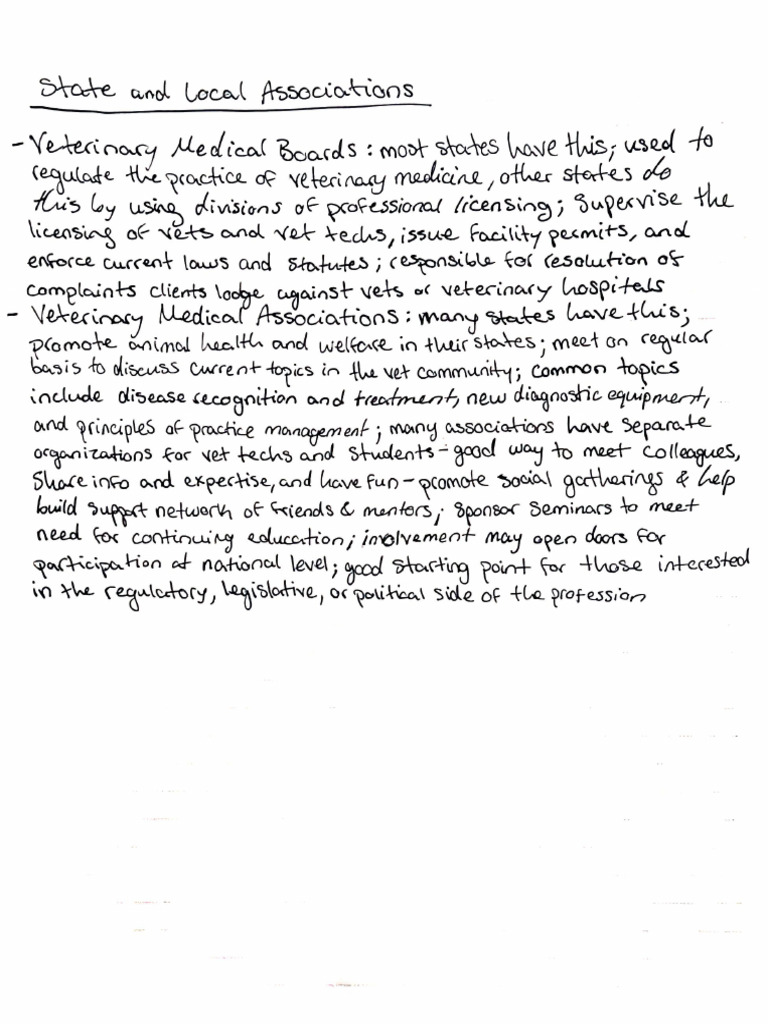 State and Local Associations
- Veterinary Medical Boards: most states have this; used to
regulate the practice of veterinary medicine, other states do
this by using divisions of professional licensing; supervise the
licensing of vets and vet techs, issue facility permits, and
enforce current laws and statutes; responsible for resolution of
complaints clients lodge against vets or veterinary hospitals
- Veterinary Medical Associations: many states have this;
promote animal health and welfare in their states; meet on regular
basis to discuss current topics in the vet community; common topics
include disease recognition and treatment, new diagnostic equipment,
and principles of practice management; many associations have separate
organizations for vet techs and students - good way to meet colleagues,
share info and expertise, and have fun - promote social gatherings & help
build support network of friends & mentors; sponsor seminars to meet
need for continuing education; involvement may open doors for
participation at national level; good starting point for those interested
in the regulatory, legislative, or political side of the profession